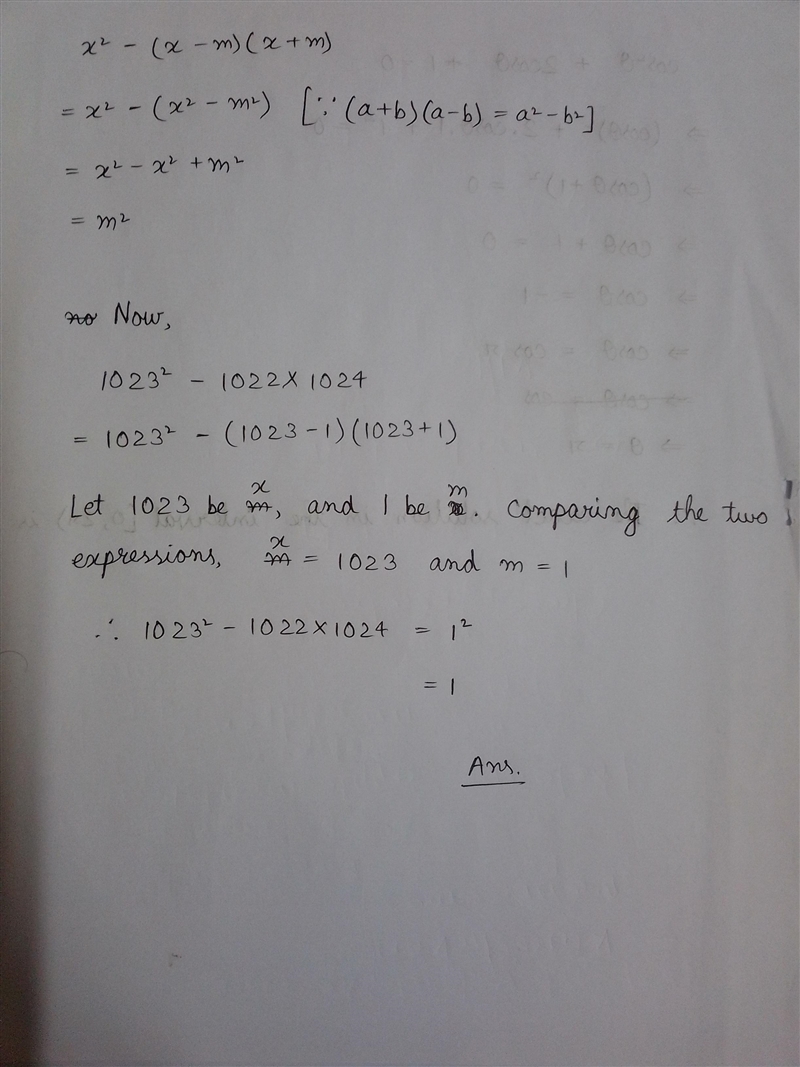 x² - (x - m)(x + m)
= x² - (x² - m²) [∵ (a+b)(a-b) = a² - b²]
= x² - x² + m²
= m²
no Now,
1023² - 1022 × 1024
= 1023² - (1023 - 1)(1023 + 1)
Let 1023 be x, and 1 be m. Comparing the two
expressions, x = 1023 and m = 1
∴ 1023² - 1022 × 1024 = 1²
= 1
Ans.